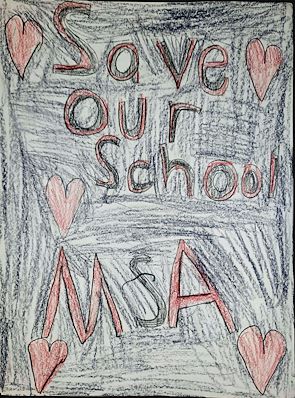 Save
Our
School
MSA